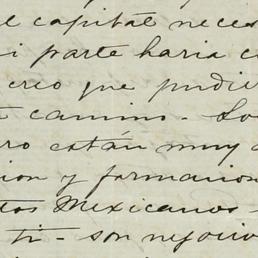 el capital neces
i parte haria c
creo que pudie
camino. So
ro están muy
ion y formarion
tos Mexicanos
ti - son negocio